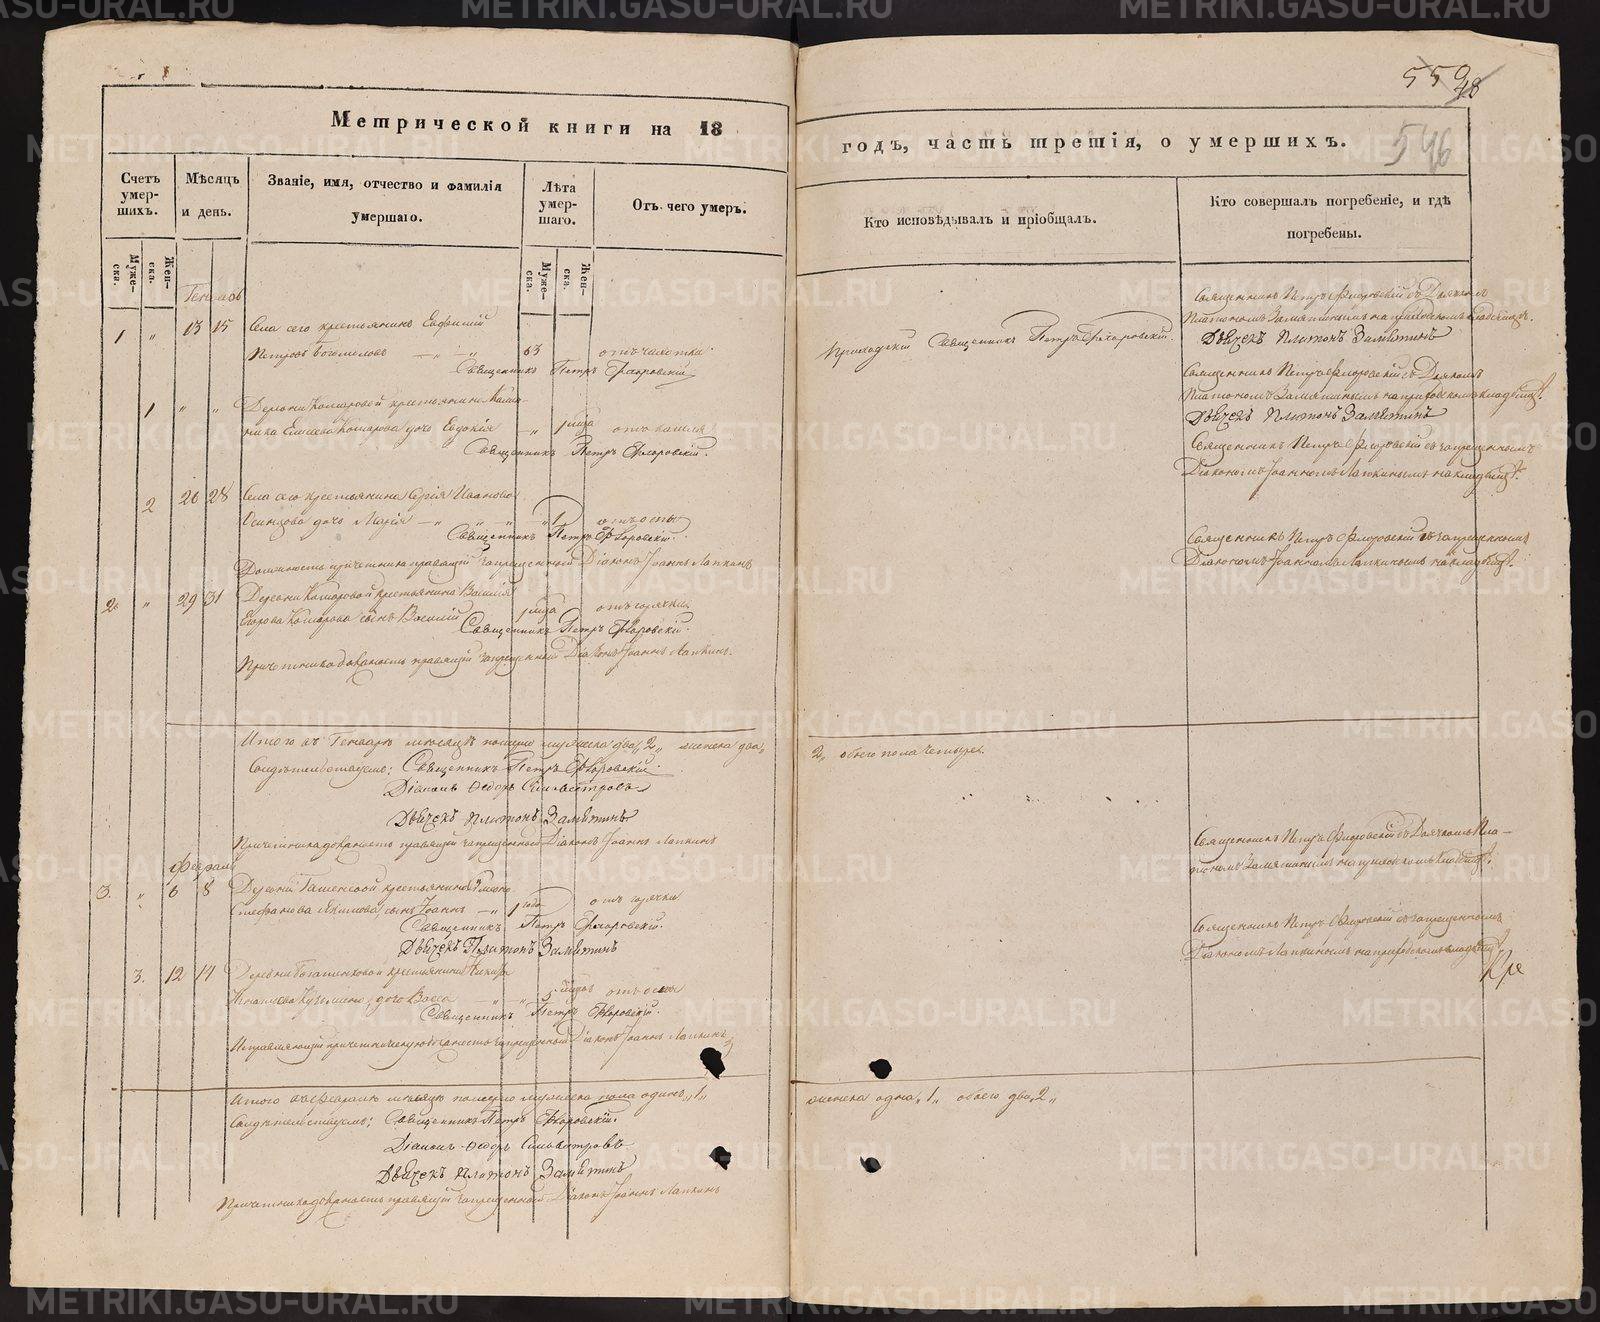 Метрической книги на 18
годъ, часть третія, о умершихъ.
546
Счетъ умер-шихъ.
Мѣсяцъ и день.
Званіе, имя, отчество и фамилія умершаго.
Лѣта умер-шаго.
Отъ чего умеръ.
Кто исповѣдывалъ и пріобщалъ.
Кто совершалъ погребеніе, и гдѣ погребены.
Муже-ска.
Жен-ска.
Муже-ска.
Жен-ска.
1 " 13 15 Села сего крестьянинъ Евфимій
Петровъ 63 отъ чахотки
Священникъ Петръ Флоровскій
Приходскій Священникъ Петръ Флоровскій.
Священникъ Петръ Флоровскій съ Дьячкомъ
Платономъ Замятинымъ на приходскомъ кладбищѣ.
Дьячекъ Платонъ Замятинъ
1 " " Деревни Комаровой крестьянина
Елисеева Комарова дочь Евдокія отъ кашля
Священникъ Петръ Флоровскій.
Священникъ Петръ Флоровскій съ Дьячкомъ
Платономъ Замятинымъ на приходскомъ кладбищѣ.
Дьячекъ Платонъ Замятинъ
2 26 28 Села сего крестьянина Сергія Иванова
Осинцова дочь Марія 1 отъ оспы
Священникъ Петръ Флоровскій.
Должность причетника правящій запрещенный Діаконъ Іоаннъ Лапкинъ
Священникъ Петръ Флоровскій съ запрещеннымъ
Діакономъ Іоанномъ Лапкинымъ на кладбищѣ.
2 " 29 31 Деревни Комаровой крестьянина Василія
Егорова Комарова сынъ Василій отъ горячки
Священникъ Петръ Флоровскій.
Причетника должность правящій запрещенный Діаконъ Іоаннъ Лапкинъ.
Священникъ Петръ Флоровскій съ запрещеннымъ
Діакономъ Іоанномъ Лапкинымъ на кладбищѣ.
Итого въ Генварѣ мѣсяцѣ померло мужеска два, 2, женска два,
2, обоего пола четыре.
Свидѣтельствуемъ: Священникъ Петръ Флоровскій.
Діаконъ Ѳедоръ Сильвестровъ
Дьячекъ Платонъ Замятинъ
Причетника должность правящій запрещенный Діаконъ Іоаннъ Лапкинъ
Февраль
3. " 6 8 Деревни крестьянина
Стефанова Якимова сынъ Іоаннъ 1 года отъ горячки
Священникъ Петръ Флоровскій.
Дьячекъ Платонъ Замятинъ
Священникъ Петръ Флоровскій съ Дьячкомъ Пла-
тономъ Замятинымъ на приходскомъ кладбищѣ.
3. 12 14 Деревни крестьянина
Игнатьева Кузьмина дочь Васса отъ оспы
Священникъ Петръ Флоровскій.
Исправляющій причетническую должность запрещенный Діаконъ Іоаннъ Лапкинъ
Священникъ Петръ Флоровскій съ запрещеннымъ
Діакономъ Лапкинымъ на приходскомъ кладбищѣ
Итого въ Февралѣ мѣсяцѣ померло мужеска пола одинъ, 1,
женска одна, 1, обоего два, 2,
Свидѣтельствуемъ: Священникъ Петръ Флоровскій.
Діаконъ Ѳедоръ Сильвестровъ
Дьячекъ Платонъ Замятинъ
Причетника должность правящій запрещенный Діаконъ Іоаннъ Лапкинъ
METRIKI.GASO-URAL.RU